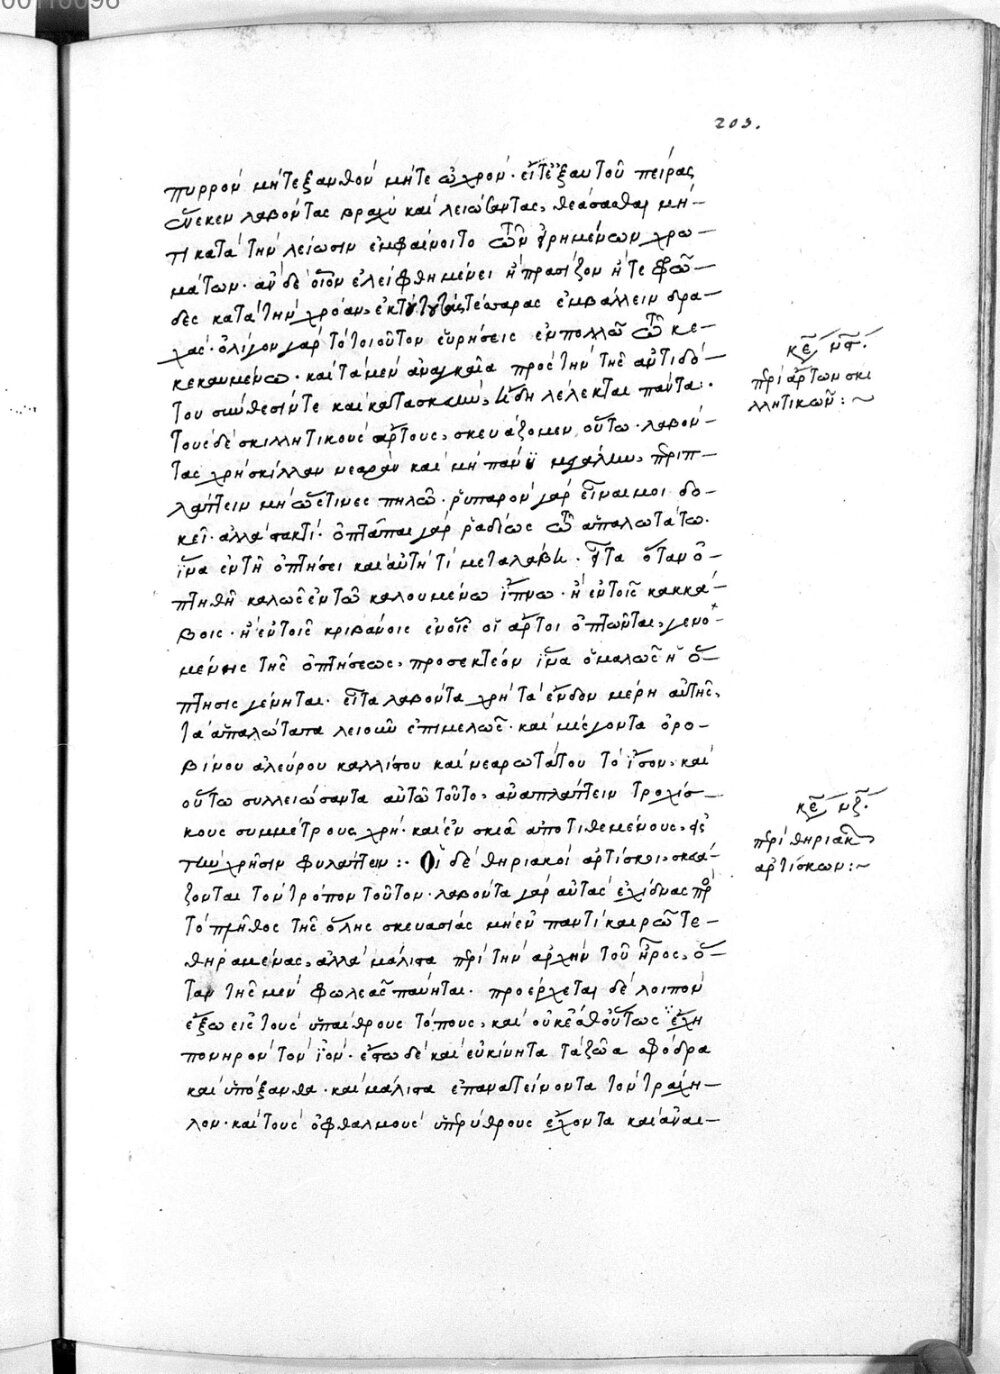 203.
πυρρὸν μήτε ξανθὸν μήτε ὠχρόν· εἶτ' ἐξ αὐτοῦ πείρας
ἕνεκεν λαβόντας βραχὺ καὶ λειώσαντας, θεάσασθαι μή-
τι κατὰ τὴν λείωσιν ἐμφαίνοιτο τῶν εἰρημένων χρω-
μάτων· ἂν δὲ οἷον ἐλείφθη μένει ἢ πρασίζον ἢ τε φῶ-
δες κατὰ τὴν χρόαν, ἐκ τέσσαρας ἐμβάλλειν δρα-
χάς· ὀλίγον γὰρ τὸ τοιοῦτον εὑρήσεις ἐν πολλῷ τῷ κε-
κεκαυμένῳ· καὶ τὰ μὲν ἀναγκαῖα πρὸς τὴν τῆς ἀντιδό-
του σύνθεσίν τε καὶ κατασκευὴν, ἤδη λέλεκται πάντα:·
τοὺς δὲ σκιλλητικοὺς ἄρτους, σκευάζομεν οὕτω· λαβόν-
τας χρὴ σκίλλαν νεαρὰν καὶ μὴ πάνυ μεγάλην, περιπ-
λάττειν μὴ ὥς τινες πηλῷ· ῥυπαρὸν γὰρ εἶναι μοι δο-
κεῖ· ἀλλὰ σταιτί· ὀπτᾶται γὰρ ῥαδίως τῷ ἁπαλωτάτῳ·
ἵνα ἐν τῇ ὀπτήσει καὶ αὐτή τι μεταλάβῃ· εἶτα ὅταν ὀ-
πτηθῇ καλῶς ἐν τῷ καλουμένῳ ἴπνῳ· ἢ ἐν τοῖς κακκά-
βοις· ἢ ἐν τοῖς κριβάνοις ἐν οἷς οἱ ἄρτοι ὀπτῶνται, γενο-
μένης τῆς ὀπτήσεως, προσεκτέον ἵνα ὁμαλῶς ἡ ὄ-
πτησις γένηται· εἶτα λαβόντα χρὴ τὰ ἔνδον μέρη αὐτῆς,
τὰ ἁπαλώτατα λειοῦν ἐπιμελῶς· καὶ μίσγοντα ὀρο-
βίνου ἀλεύρου καλλίστου καὶ νεαρωτάτου τὸ ἴσον, καὶ
οὕτω συλλειώσαντα αὐτῷ τοῦτο, ἀναπλάττειν τροχίσ-
κους συμμέτρους χρή· καὶ ἐν σκιᾷ ἀποτιθεμένους, εἰς
τὴν χρῆσιν φυλάττειν:· Οἱ δὲ θηριακοὶ ἀρτίσκοι, σκευά-
ζονται τὸν τρόπον τοῦτον· λαβόντα γὰρ αὐτὰς ἐχίδνας πρ
τὸ πλῆθος τῆς ὅλης σκευασίας μὴ ἐν παντὶ καιρῷ τε-
θηραμένας, ἀλλὰ μάλιστα περὶ τὴν ἀρχὴν τοῦ ἦρος, ὅ-
ταν τῆς μὲν φωλεᾶς παύηται· προέρχεται δὲ λοιπὸν
ἔξω εἰς τοὺς ὑπαίθρους τόπους, καὶ οὐκέθ' οὕτως ἔχῃ
πονηρὸν τὸν ἰόν· ἔστω δὲ καὶ εὐκίνητα τὰ ζῶα σφόδρα
καὶ ὑπόξανθα· καὶ μάλιστα ἐπανατείνοντα τὸν τράχη-
λον· καὶ τοὺς ὀφθαλμοὺς ὑπερύθρους ἔχοντα καὶ ἀναι-
κεφ νϛ·
περὶ ἄρτων σκι
λλητικῶν:~
κεφ νζ·
περὶ θηριακ
ἀρτίσκων:~